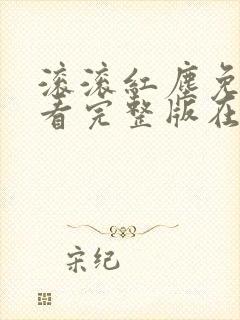 滚滚紅塵免
看完整版在
宋纪